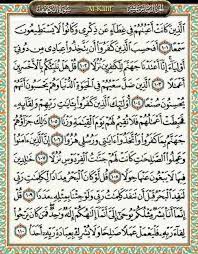 سورة الكهف Al-Kahf الجزء السادس عشر
الذين كانت أعينهم في غطاء عن ذكري وكانوا لا يستطيعون
سمعا ١٠١ أفحسب الذين كفروا أن يتخذوا عبادي من دوني
أولياء إنا أعتدنا جهنم للكافرين نزلا ١٠٢ قل هل ننبئكم بالأخسرين
أعمالا ١٠٣ الذين ضل سعيهم في الحياة الدنيا وهم يحسبون أنهم
يحسنون صنعا ١٠٤ أولئك الذين كفروا بآيات ربهم ولقائه فحبطت
أعمالهم فلا نقيم لهم يوم القيامة وزنا ١٠٥ ذلك جزاؤهم
جهنم بما كفروا واتخذوا آياتي ورسلي هزوا ١٠٦ إن الذين آمنوا
وعملوا الصالحات كانت لهم جنات الفردوس نزلا ١٠٧ خالدين
فيها لا يبغون عنها حولا ١٠٨ قل لو كان البحر مدادا لكلمات ربي
لنفد البحر قبل أن تنفد كلمات ربي ولو جئنا بمثله مددا ١٠٩ قل
إنما أنا بشر مثلكم يوحى إلي أنما إلهكم إله واحد فمن كان يرجوا
لقاء ربه فليعمل عملا صالحا ولا يشرك بعبادة ربه أحدا ١١٠